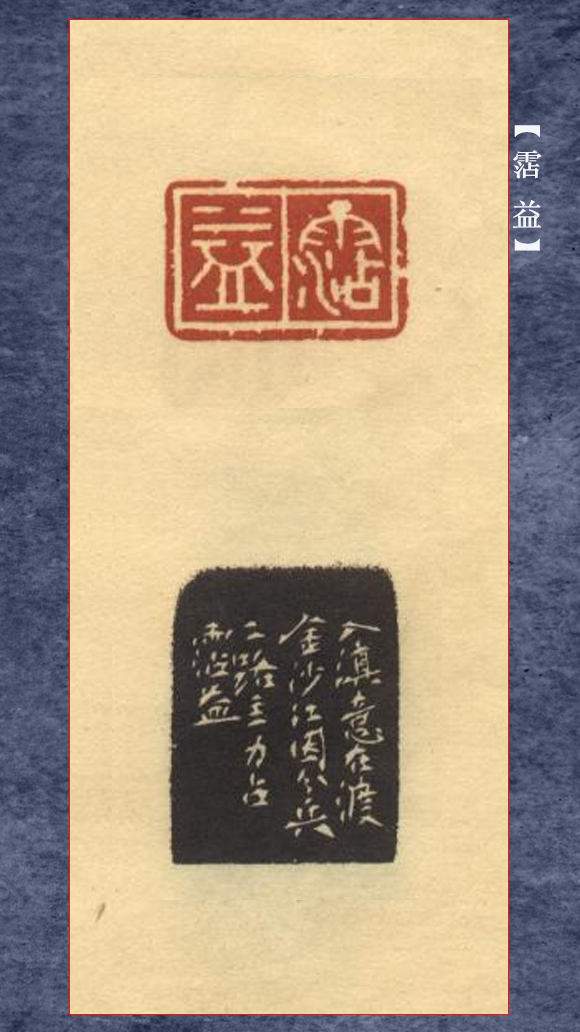 【霑益】
霑益
入滇意在渡
金沙江因分兵
二路主力占
霑益